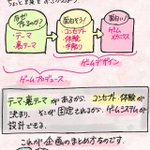 なぜ
作るのか？
面白そう！
面白い！
・テーマ
・裏テーマ
コンセプト
体験
手触り
ゲーム
メカニクス
ゲームデザイン
ゲームプロデュース
テーマ・裏テーマ があるから、コンセプト・体験が
決まり、
固定されるから、ゲームシステムが
設計できる。
これが企画のまとめ方なのです